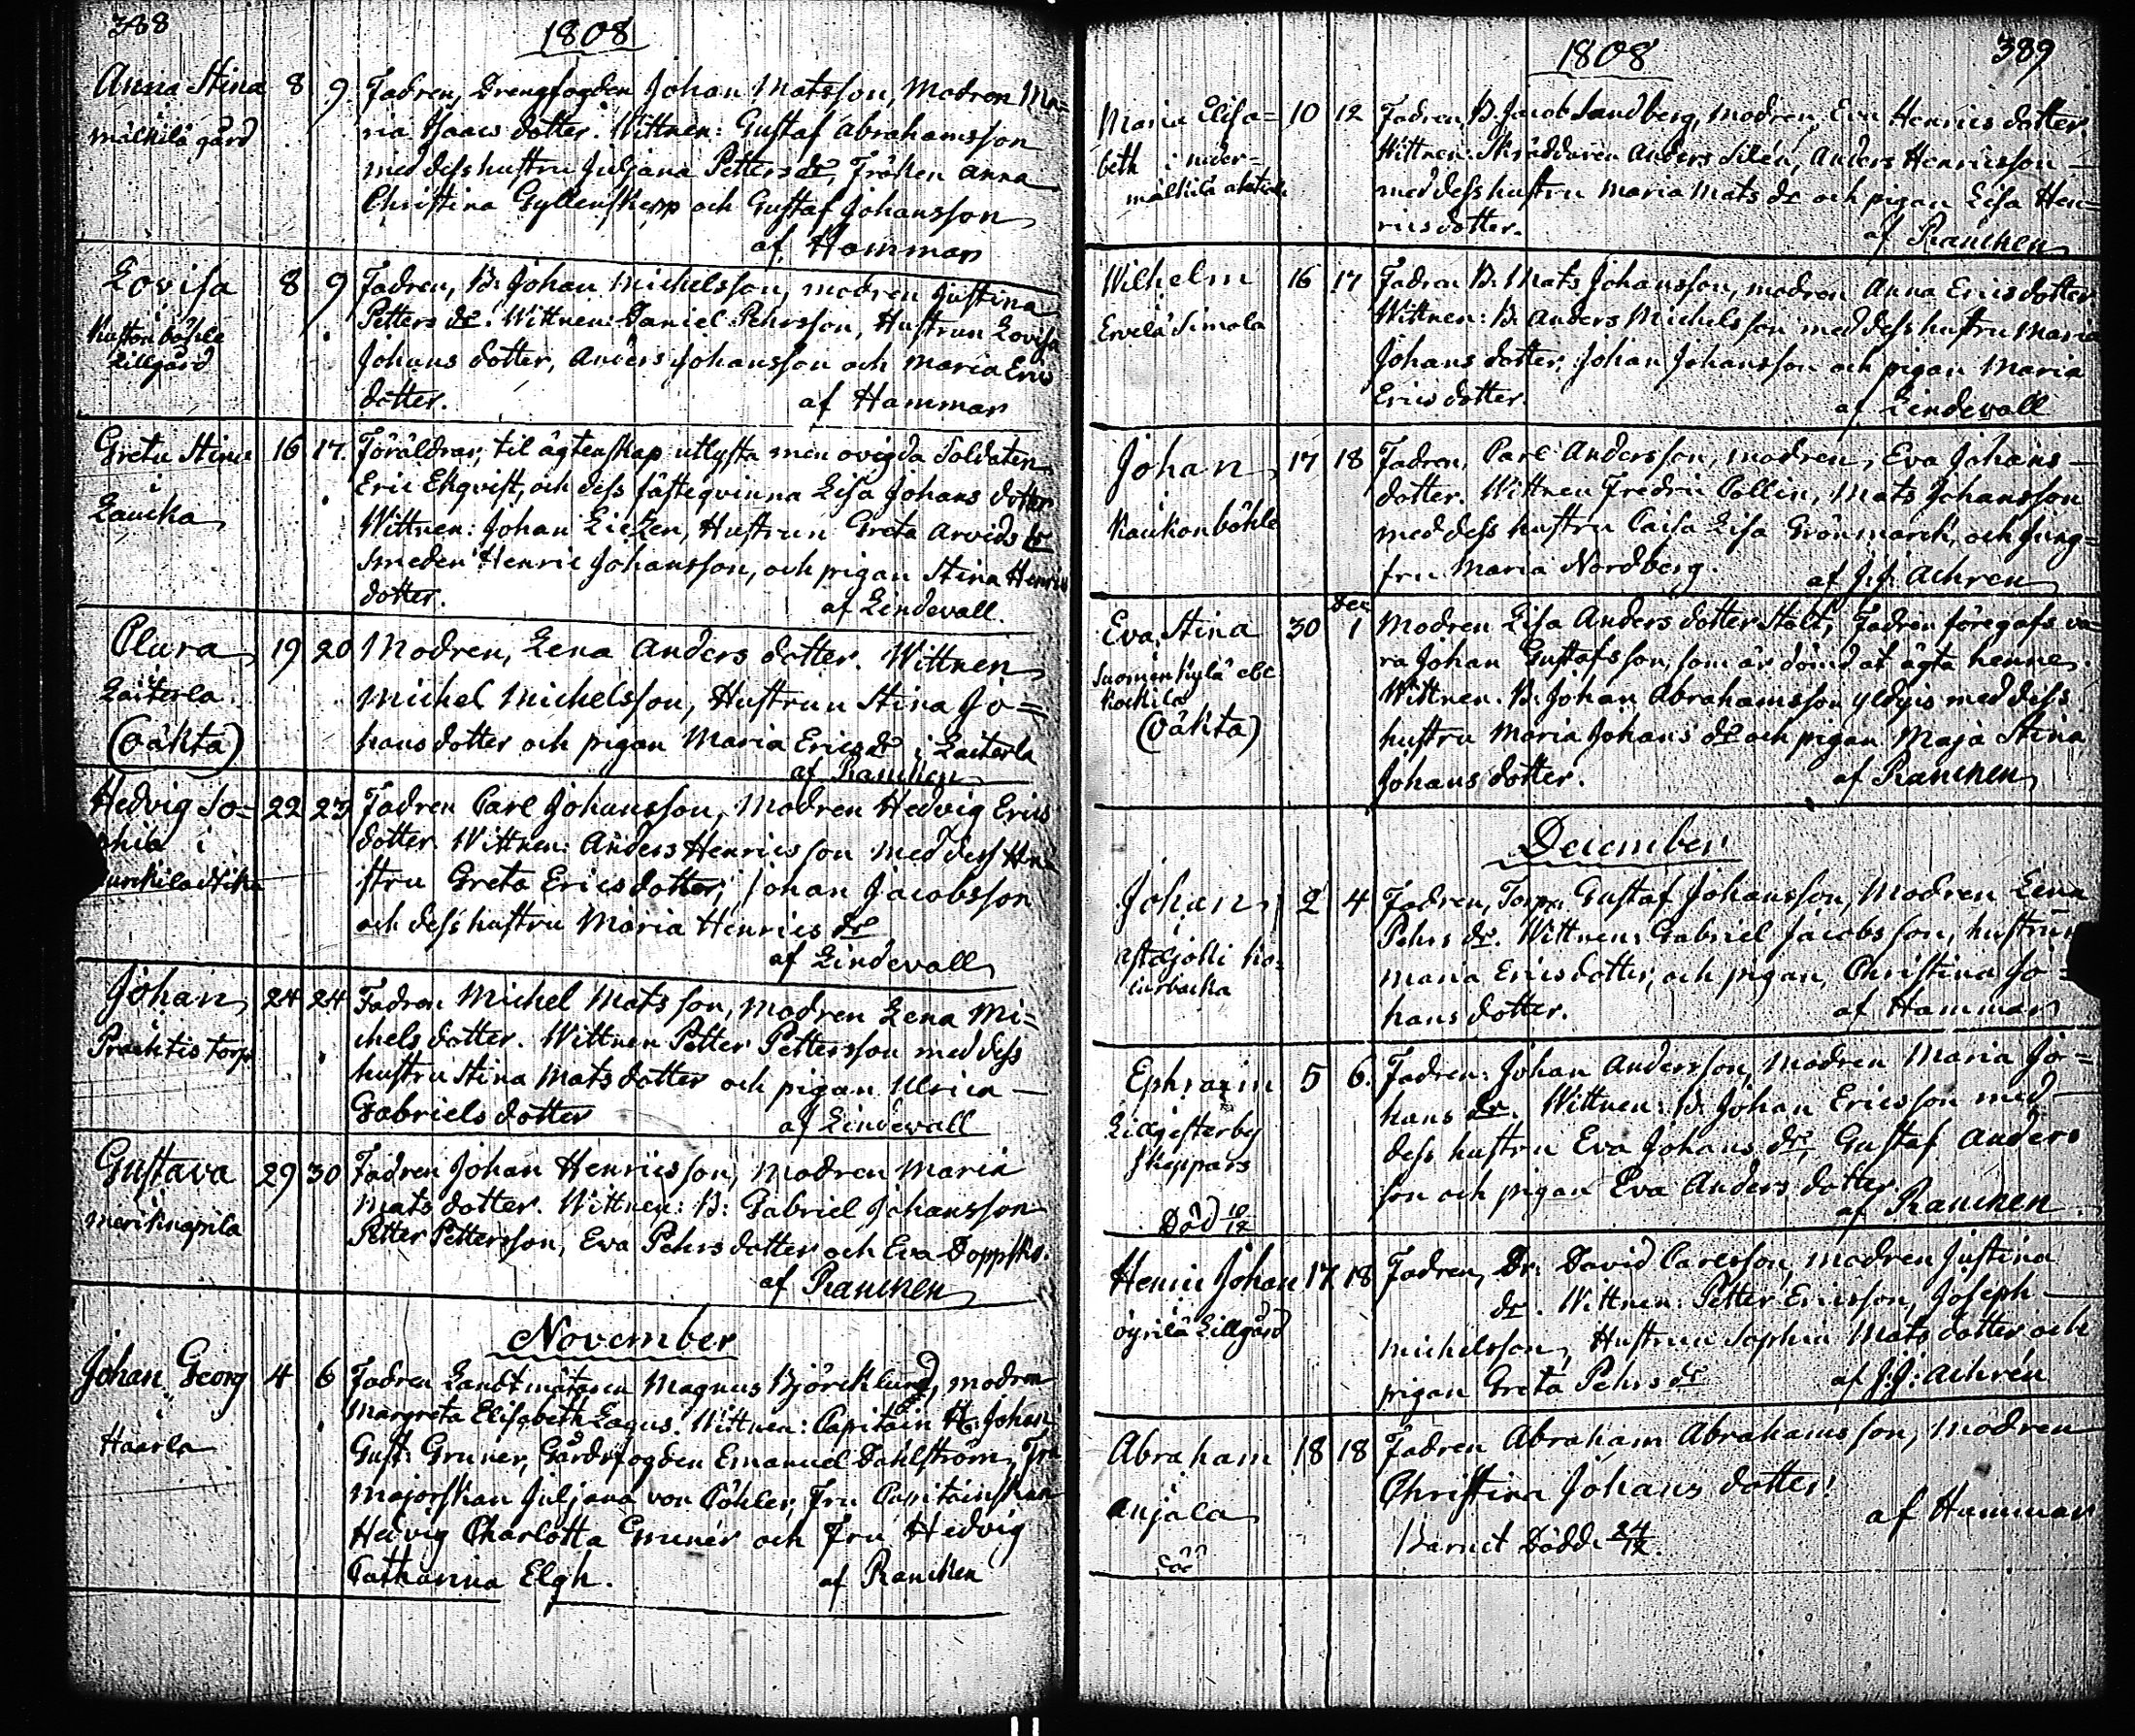 388
1808
Anna Stina 8 9 Fadren, Drengfogden Johan Matsson, Modren Ma=
i
mälkilä gård
ria Isaacs dotter. Wittnen: Gustaf Abrahamsson
med dess hustru Juljana Petters dr, Fröken Anna
Christina Gyllenskepp och Gustaf Johansson
af Hammar
Lovisa 8 9 Fadren, B. Johan Michelsson, modren Justina
i
Lillgård
Petters dr. Wittnen: Daniel Pehrsson, Hustrun Lovisa
Johans dotter, Anders Johansson och Maria Erics
dotter. af Hammar
Greta Stina 16 17. Föräldrar, til ägtenskap utlysta men ovigda Soldaten
i
Laucka
Eric Ekqvist, och dess fästeqvinna Lisa Johans dotter
Wittnen: Johan Lietzen, Hustrun Greta Arvids dr
Smeden Henric Johansson, och pigan Stina Henrics
dotter. af Lindevall.
Clara 19 20 Modren, Lena Anders dotter. Wittnen
Laiterla
(oäkta)
Michel Michelsson, Hustrun Stina Jo=
hans dotter och pigan Maria Erics dr i Laiterla
af Rancken
Hedvig So= 22 23 Fadren Carl Johansson, Modren Hedvig Erics
phia i
dotter. Wittnen: Anders Henricsson med dess Hu=
stru Greta Erics dotter, Johan Jacobsson
och dess hustru Maria Henrics dr
af Lindevall
Johan 24 24 Fadren Michel Mats son, modren Lena Mi=
i
Prähtis torp
chels dotter. Wittnen Petter Pettersson med dess
hustru Stina Mats dotter och pigan Ulrica
Gabriels dotter af Lindevall
Gustava 29 30 Fadren Johan Henricsson, modren Maria
i
Mats dotter. Wittnen: B: Gabriel Johansson
Petter Pettersson, Eva Pehrs dotter och Eva
af Rancken
November
Johan Georg 4 6 Fadren Landtmätaren Magnus Björcklund, modren
i
Haarla
Margreta Elisabeth Lagus. Wittnen: Capitain H: Johan
Gust: Gruner, Gårdsfogden Emanuel Dahlström, Fru
Majorskan Juljana von Cöhler, Fru Capitainskan
Hedvig Charlotta Gruner och Fru Hedvig
Catharina Elgh. af Rancken
1808 389
Maria Elisa= 10 12 Fadren, B. Jacob Sandberg, modren, Eva Henrics dotter
beth i neder=
mälkilä
Wittnen: Skräddaren Anders Silén, Anders Henricsson
med dess hustru Maria Mats dr och pigan Lisa Hen=
rics dotter. af Rancken
Wilhelm 16 17 Fadren B. Mats Johansson, modren Anna Erics dotter
i
Ervelä Simola
Wittnen: B. Anders Michelsson med dess hustru Maria
Johans dotter, Johan Johansson och pigan Maria
Erics dotter. af Lindevall
Johan 17 18 Fadren, Carl Andersson, modren, Eva Johans
i
Kaukonböhle
dotter. Wittnen Fredric Collin, Mats Johansson
med dess hustru Caisa Lisa Grönmarck, och Jung=
fru Maria Nordberg. af J. J. Achren
Dec
Eva Stina 30 1 Modren Lisa Anders dotter Stolt, Fadren föregafs va=
i
Suomenkylä
(oäkta)
ra Johan Gustafsson, som är dömd at ägta henne.
Wittnen: B. Johan Abrahamsson med dess
hustru Maria Johans dr och pigan Maja Stina
Johans dotter. af Rancken
December
Johan 2 4 Fadren, Torp: Gustaf Johansson, Modren Lena
i
Pehrs dr. Wittnen: Gabriel Jacobsson, hustrun
Maria Erics dotter, och pigan, Christina Jo=
hans dotter. af Hammar
Ephraim 5 6. Fadren: Johan Andersson, Modren Maria Jo=
i
skeppars
Död 10/12
hans dr. Wittnen: B. Johan Ericsson med
dess hustru Eva Johans dr, Gustaf Anders
son och pigan Eva Anders dotter
af Rancken
Henric Johan 17 18 Fadren, Dr: David Carlsson, modren Justina
i
öyrilä Lillgård
dr. Wittnen: Petter Ericsson, Joseph
Michelsson, Hustrun Sophia Mats dotter och
pigan Greta Pehrs dr af J: J: Achrén
Abraham 18 18 Fadren Abraham Abrahamsson, modren
i
Anjala
Christina Johans dotter.
af Hammar
Barnet Dödde 24/12.